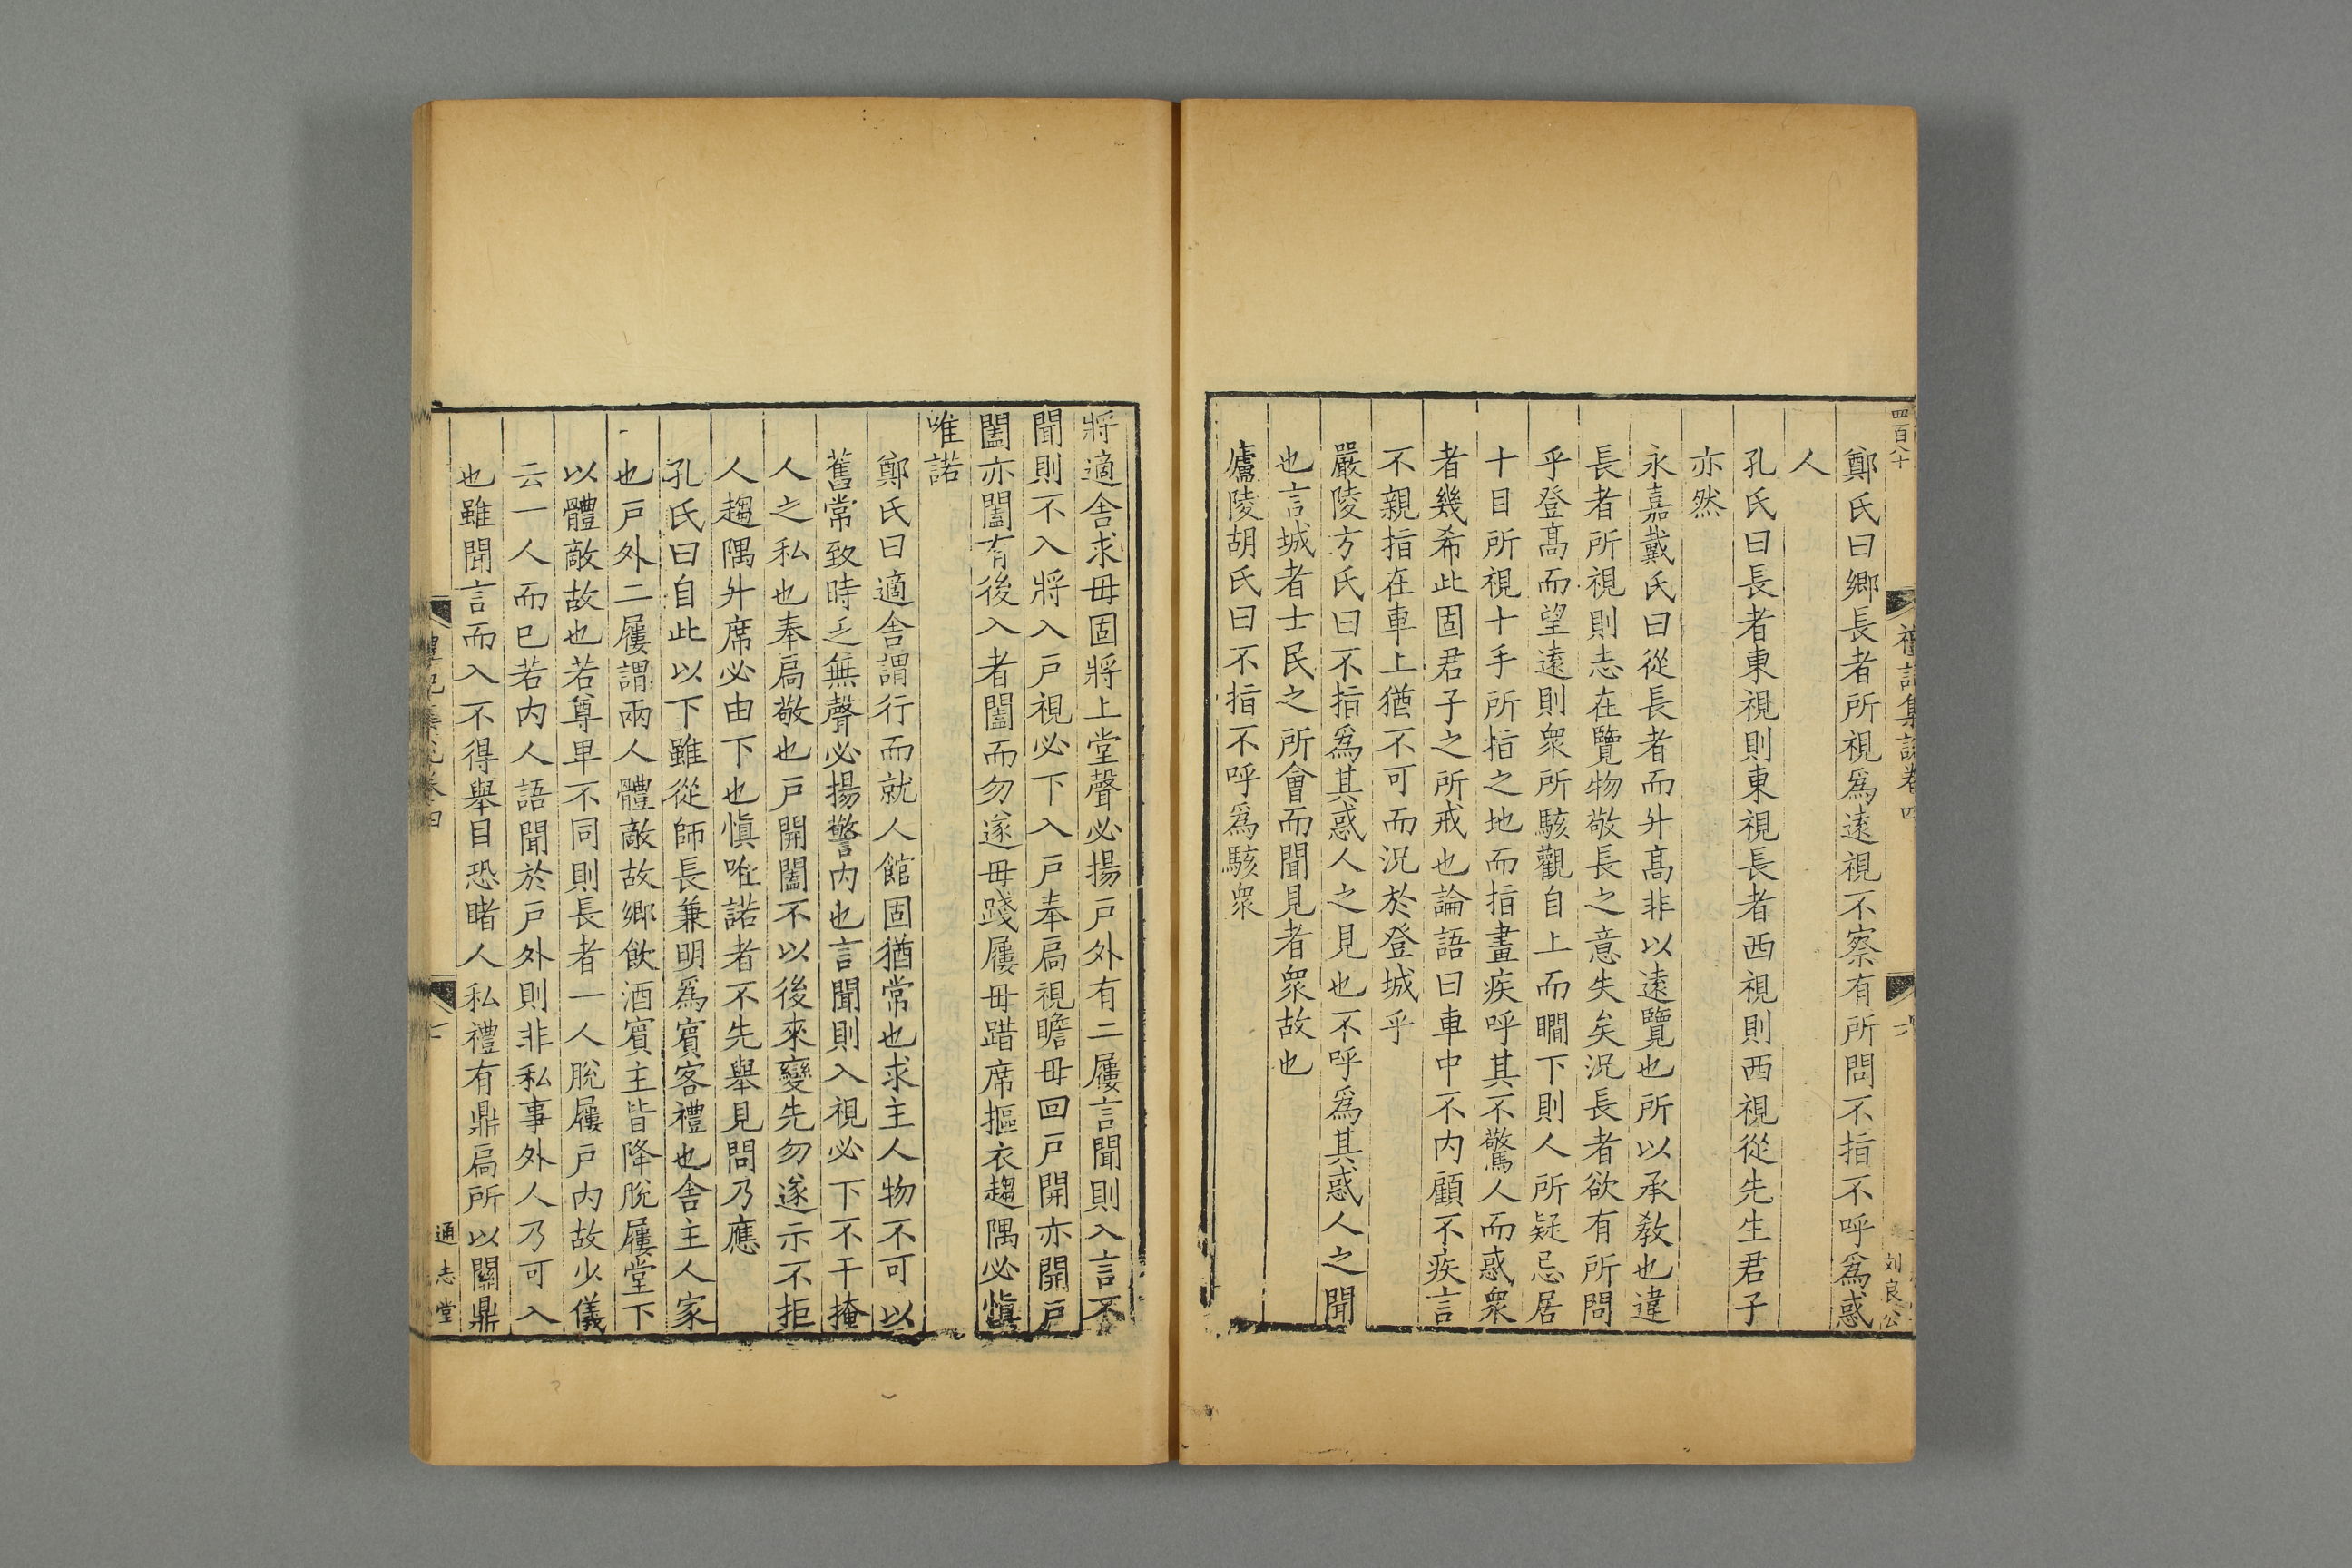 四百八十
禮記集說卷四
六
刘良公
鄭氏曰鄉長者所視爲遠視不察有所問不指不呼爲惑
人
孔氏曰長者東視則東視長者西視則西視從先生君子
亦然
永嘉戴氏曰從長者而升髙非以遠覽也所以承敎也違
長者所視則志在覽物敬長之意失矣況長者欲有所問
乎登髙而望遠則衆所駭觀自上而瞯下則人所疑忌居
十目所視十手所指之地而指畫疾呼其不驚人而惑衆
者幾希此固君子之所戒也論語曰車中不内顧不疾言
不親指在車上猶不可而況於登城乎
嚴陵方氏曰不指爲其惑人之見也不呼爲其惑人之聞
也言城者士民之所會而聞見者衆故也
廬陵胡氏曰不指不呼爲駭衆
將適舎求毋固將上堂聲必揚戸外有二屨言聞則入言不
聞則不入將入戸視必下入戸奉扃視瞻毋回戸開亦開戸
闔亦闔有後入者闔而勿遂毋踐屨毋踖席摳衣趨隅必慎
唯諾
鄭氏曰適舎謂行而就人館固猶常也求主人物不可以
舊常致時乏無聲必揚警内也言聞則入視必下不干掩
人之私也奉扃敬也戸開闔不以後來變先勿遂示不拒
人趨隅升席必由下也慎唯諾者不先舉見問乃應
孔氏曰自此以下雖從師長兼明爲賓客禮也舎主人家
也戸外二屨謂兩人體敵故鄉飲酒賓主皆降脫屨堂下
以體敵故也若尊卑不同則長者一人脫屨戸内故少儀
云一人而已若内人語聞於戸外則非私事外人乃可入
也雖聞言而入不得舉目恐睹人私禮有鼎扃所以關鼎
禮記集說卷四
七
通志堂